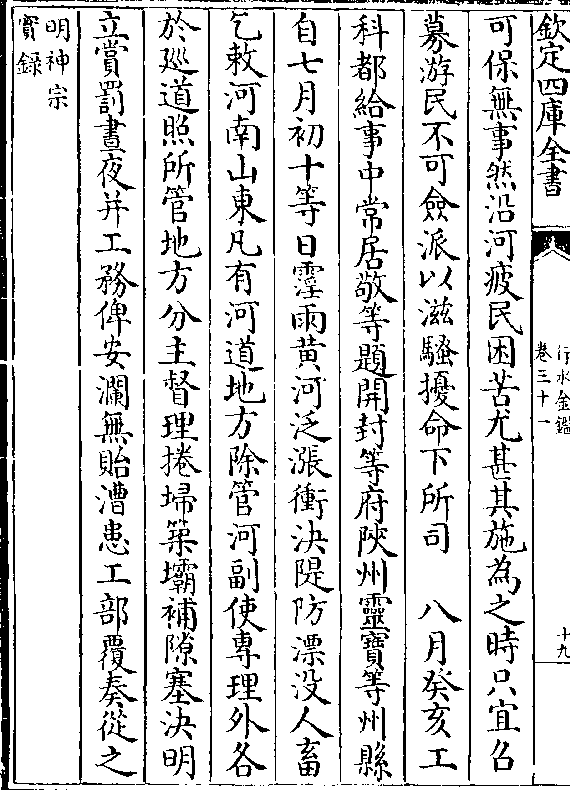 欽定四庫全書
行水金鑑
卷三十一
十九
可保無事然沿河疲民困苦尤甚其施為之時只宜召
募游民不可僉派以滋騷擾命下所司　八月癸亥工
科都給事中常居敬等題開封等府陝州靈寶等州縣
自七月初十等日霪雨黄河泛漲衝決隄防漂没人畜
乞敕河南山東凡有河道地方除管河副使專理外各
於廵道照所管地方分主督理捲埽築壩補隙塞決明
立賞罰晝夜并工務俾安瀾無貽漕患工部覆奏從之
明神宗
實錄